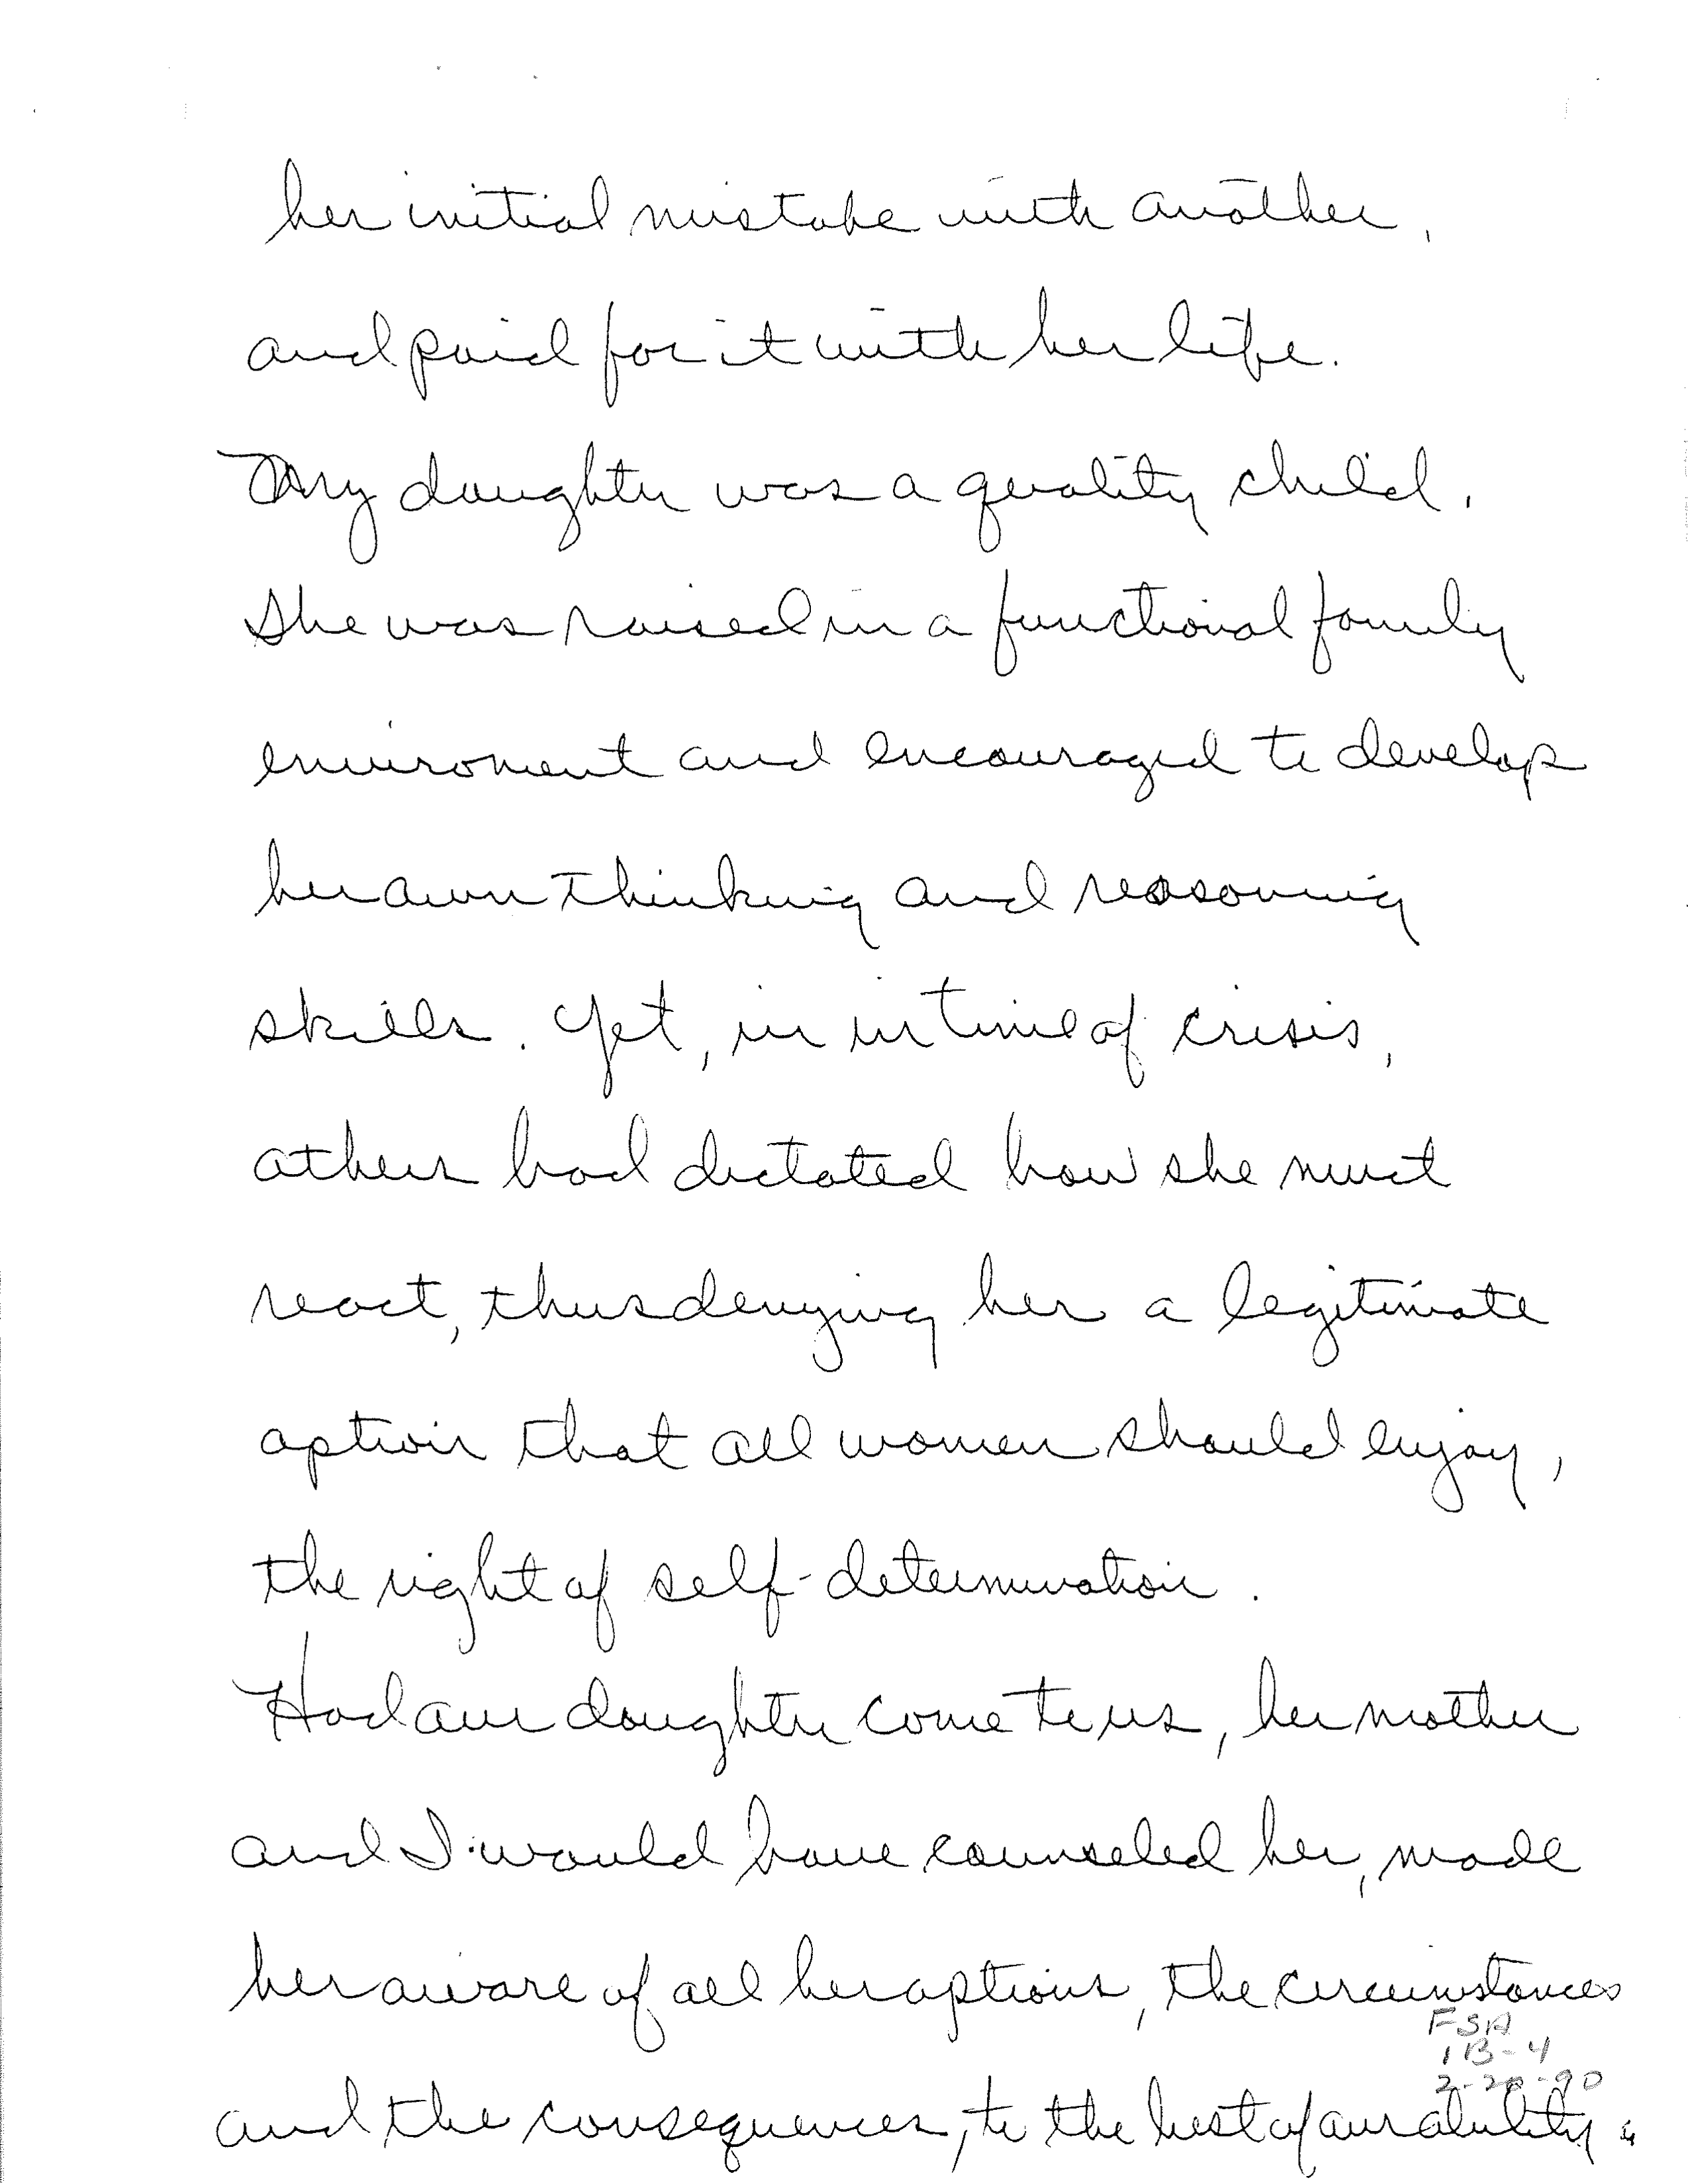 her initial mistake with another,
and paid for it with her life.
My daughter was a quality child.
She was raised in a functional family
enviroment and encouraged to develop
her own thinking and reasoning
skills. Yet, in in time of crisis,
others had dictated how she must
react, thus denying her a legitimate
option that all women should enjoy,
the right of self-determination.
Had our daughter come to us, her mother
and I would have counseled her, made
her aware of all her options, the circumstances
FSA
1B-4
2-20-90
and the consequences, to the best of our ability.